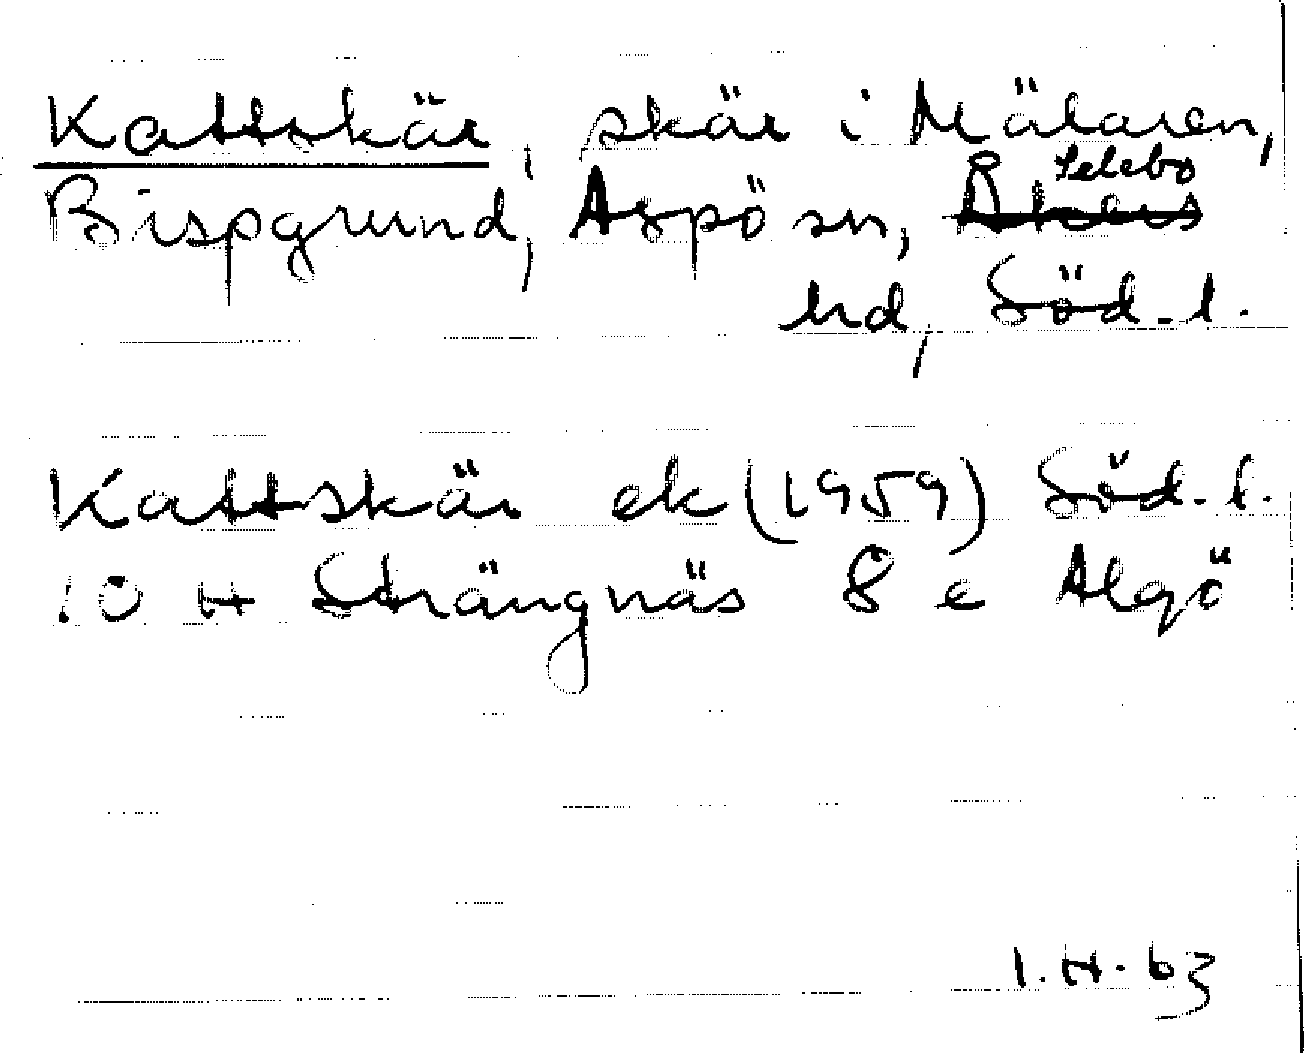 Kattskär, skär i Mälaren,
Bispgrund, Aspö sn, Selebo
hd, Söd.l.
Kattskär ek (1959) Söd.l.
10 H Strängnäs 8 e Algö
1.H.63